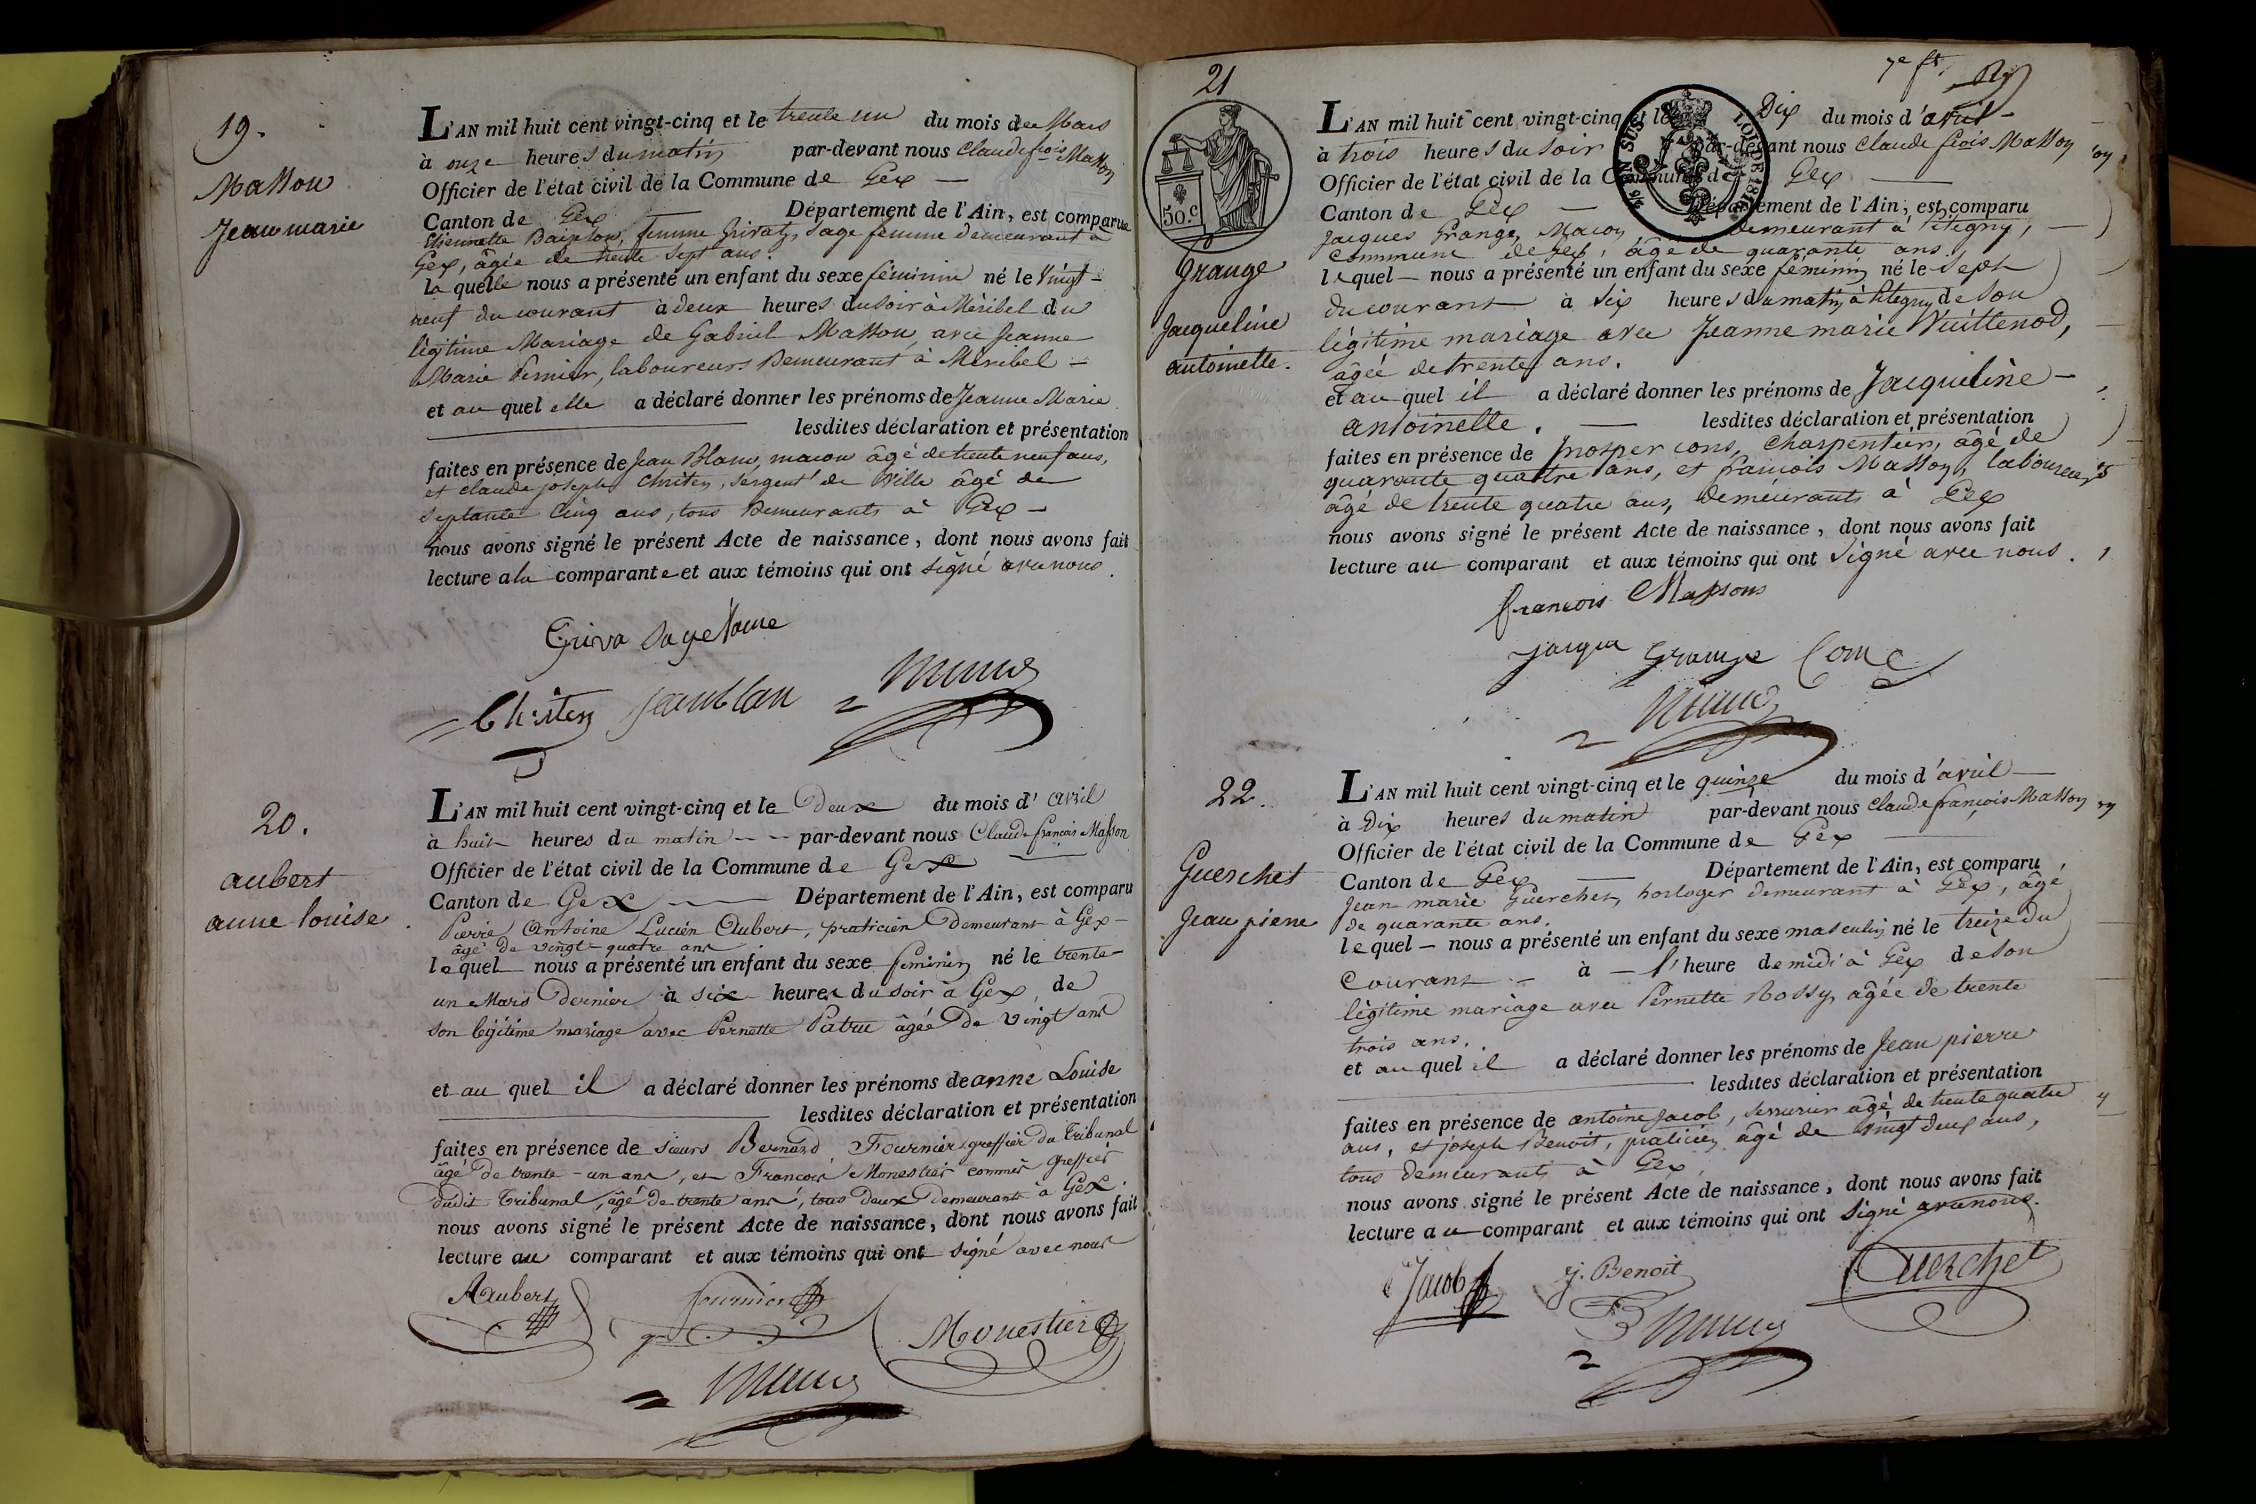 19.
Masson
Jeanne marie
L'AN mil huit cent vingt-cinq et le trente un du mois de Mars
à onze heures du matin par-devant nous Claude fcois Masson
Officier de l'état civil de la Commune de Gex
Canton de Gex Département de l'Ain, est comparue
femme Privat, Sage femme demeurant à
Gex, âgée de trente sept ans.
la quelle nous a présenté un enfant du sexe féminin né le Vingt-
neuf du courant à deux heures du soir à Méribel du
légitime Mariage de Gabriel Masson, avec Jeanne
Marie laboureurs Demeurant à Méribel
et au quel elle a déclaré donner les prénoms de Jeanne Marie
lesdites déclaration et présentation
faites en présence de Jean Blanc, macon âgé de trente neuf ans,
et claude joseph Chriten, sergent de Ville âgé de
septante Cinq ans, tous Demeurants à Gex
nous avons signé le présent Acte de naissance, dont nous avons fait
lecture a la comparante et aux témoins qui ont signé avec nous.
Griva sage fame
Chriten Jean blan
20.
aubert
anne louise
L'AN mil huit cent vingt-cinq et le Deux du mois d'avril
à huit heures du matin par-devant nous Claude françois Masson
Officier de l'état civil de la Commune de Gex
Canton de Gex Département de l'Ain, est comparu
Pierre Antoine Lucien Aubert, praticien Demeurant à Gex
âgé De vingt-quatre ans
le quel nous a présenté un enfant du sexe feminin né le trente-
un Mars Dernier à six heures du soir à Gex, de
son légitime mariage avec Pernette Patru âgée De vingt ans
et au quel il a déclaré donner les prénoms de anne Louise
lesdites déclaration et présentation
faites en présence de sieurs Bernard Fournier greffier du Tribunal
âgé De trente-un ans, et François Monestier commis Greffier
dudit Tribunal, âgé De trente ans, tous Deux Demeurants à Gex.
nous avons signé le présent Acte de naissance, dont nous avons fait
lecture au comparant et aux témoins qui ont signé avec nous
Aubert fournier
Monestier
21
50.c
Grange
Jacqueline
antoinette.
7e ft.
L'AN mil huit cent vingt-cinq et le Dix du mois d'avril
à trois heures du soir par-devant nous Claude fcois Masson
Officier de l'état civil de la Commune de Gex
Canton de Gex Département de l'Ain, est comparu
Jacques Grange, Macon demeurant à Pitegny,
Commune de Gex, âgé de quarante ans.
le quel nous a présenté un enfant du sexe féminin né le sept
du courant à six heures du matin à Pitegny de son
légitime mariage avec Jeanne marie Vuillenod,
âgée de trente ans.
et au quel il a déclaré donner les prénoms de Jacqueline
antoinette. lesdites déclaration et présentation
faites en présence de prosper cons, Charpentier, âgé de
quarante quatre ans, et francois Masson, laboureur
âgé de trente quatre ans, demeurants à Gex
nous avons signé le présent Acte de naissance, dont nous avons fait
lecture au comparant et aux témoins qui ont signé avec nous.
francois Massons
Grange Cons
22.
Guerchet
Jean pierre
L'AN mil huit cent vingt-cinq et le quinze du mois d'avril
à Dix heures du matin par-devant nous Claude françois Masson
Officier de l'état civil de la Commune de Gex
Canton de Gex Département de l'Ain, est comparu
Jean marie Guerchet, horloger demeurant à Gex, âgé
de quarante ans.
le quel nous a présenté un enfant du sexe masculin né le treize du
Courant à l'heure de midi à Gex de son
légitime mariage avec Pernette Rossy, âgée de trente
trois ans.
et au quel il a déclaré donner les prénoms de Jean pierre
lesdites déclaration et présentation
faites en présence de antoine Jacob, serrurier âgé de trente quatre
ans, et joseph Benoit, praticien âgé de vingt deux ans,
tous demeurants à Gex,
nous avons signé le présent Acte de naissance, dont nous avons fait
lecture au comparant et aux témoins qui ont signé avec nous.
Jacob j. Benoit Guerchet